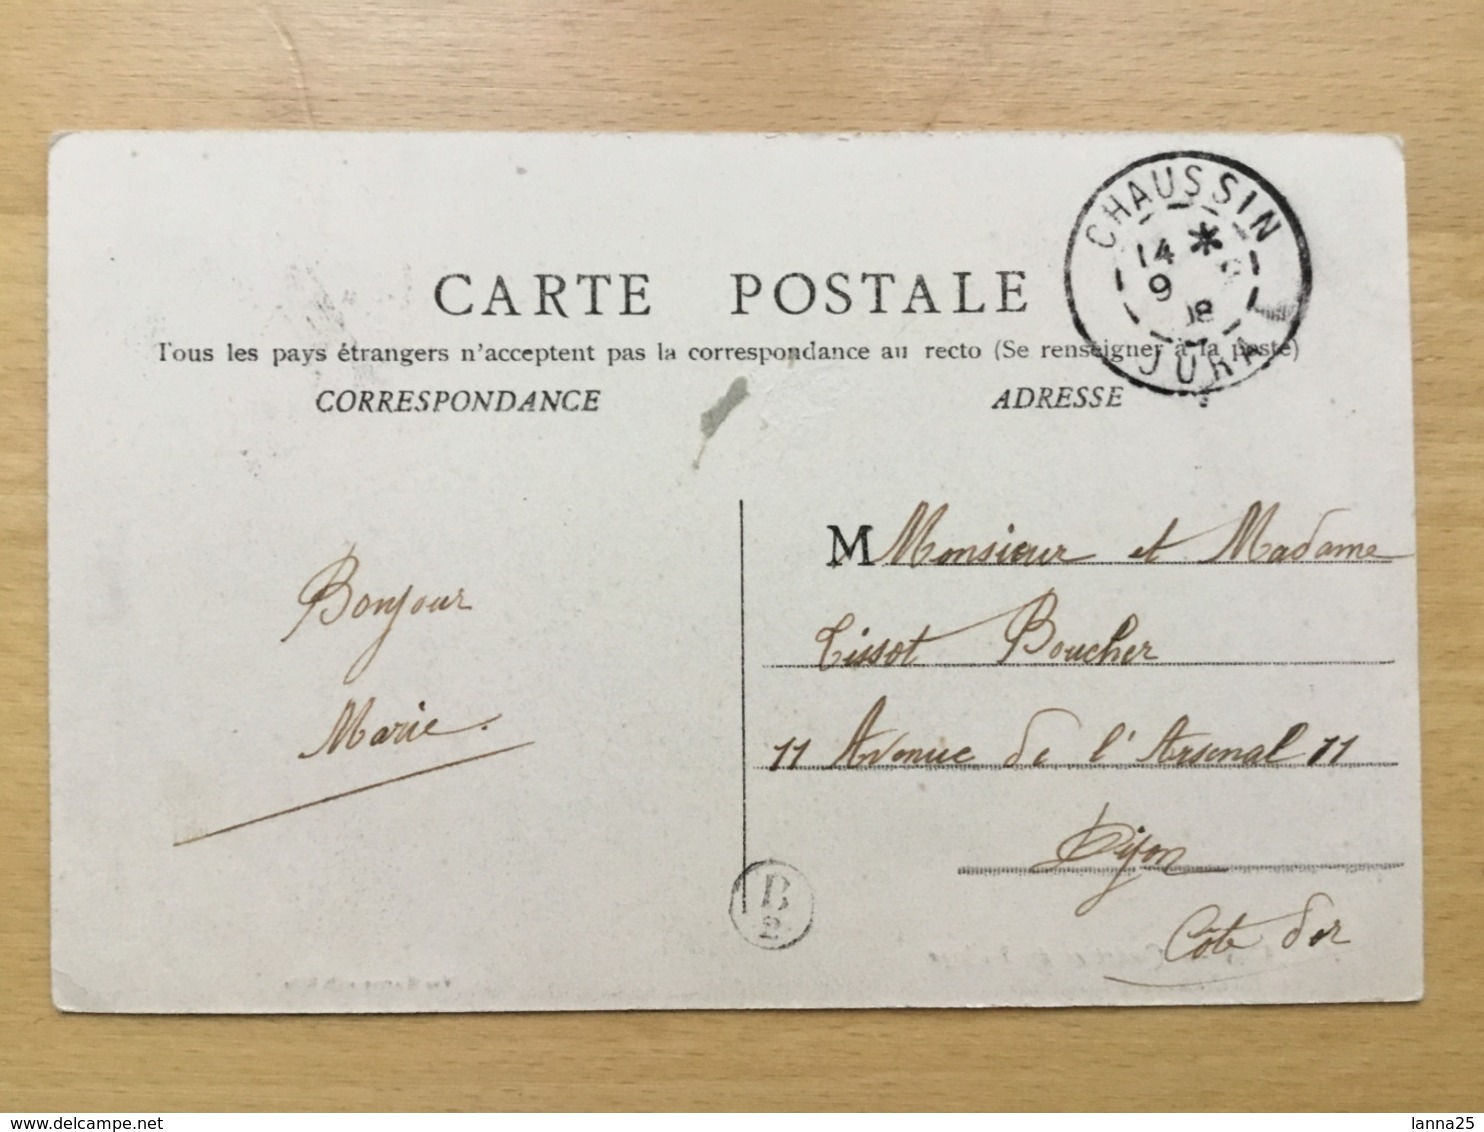 CHAUSSIN
14 *
9
08
JURA
CARTE POSTALE
Tous les pays étrangers n'acceptent pas la correspondance au recto (Se renseigner à la poste)
CORRESPONDANCE
ADRESSE
Bonjour
Marie.
M Monsieur et Madame
Tissot Boucher
11 Avenue de l'Arsenal 11
Dijon
Côte d'or
B
2
lanna25